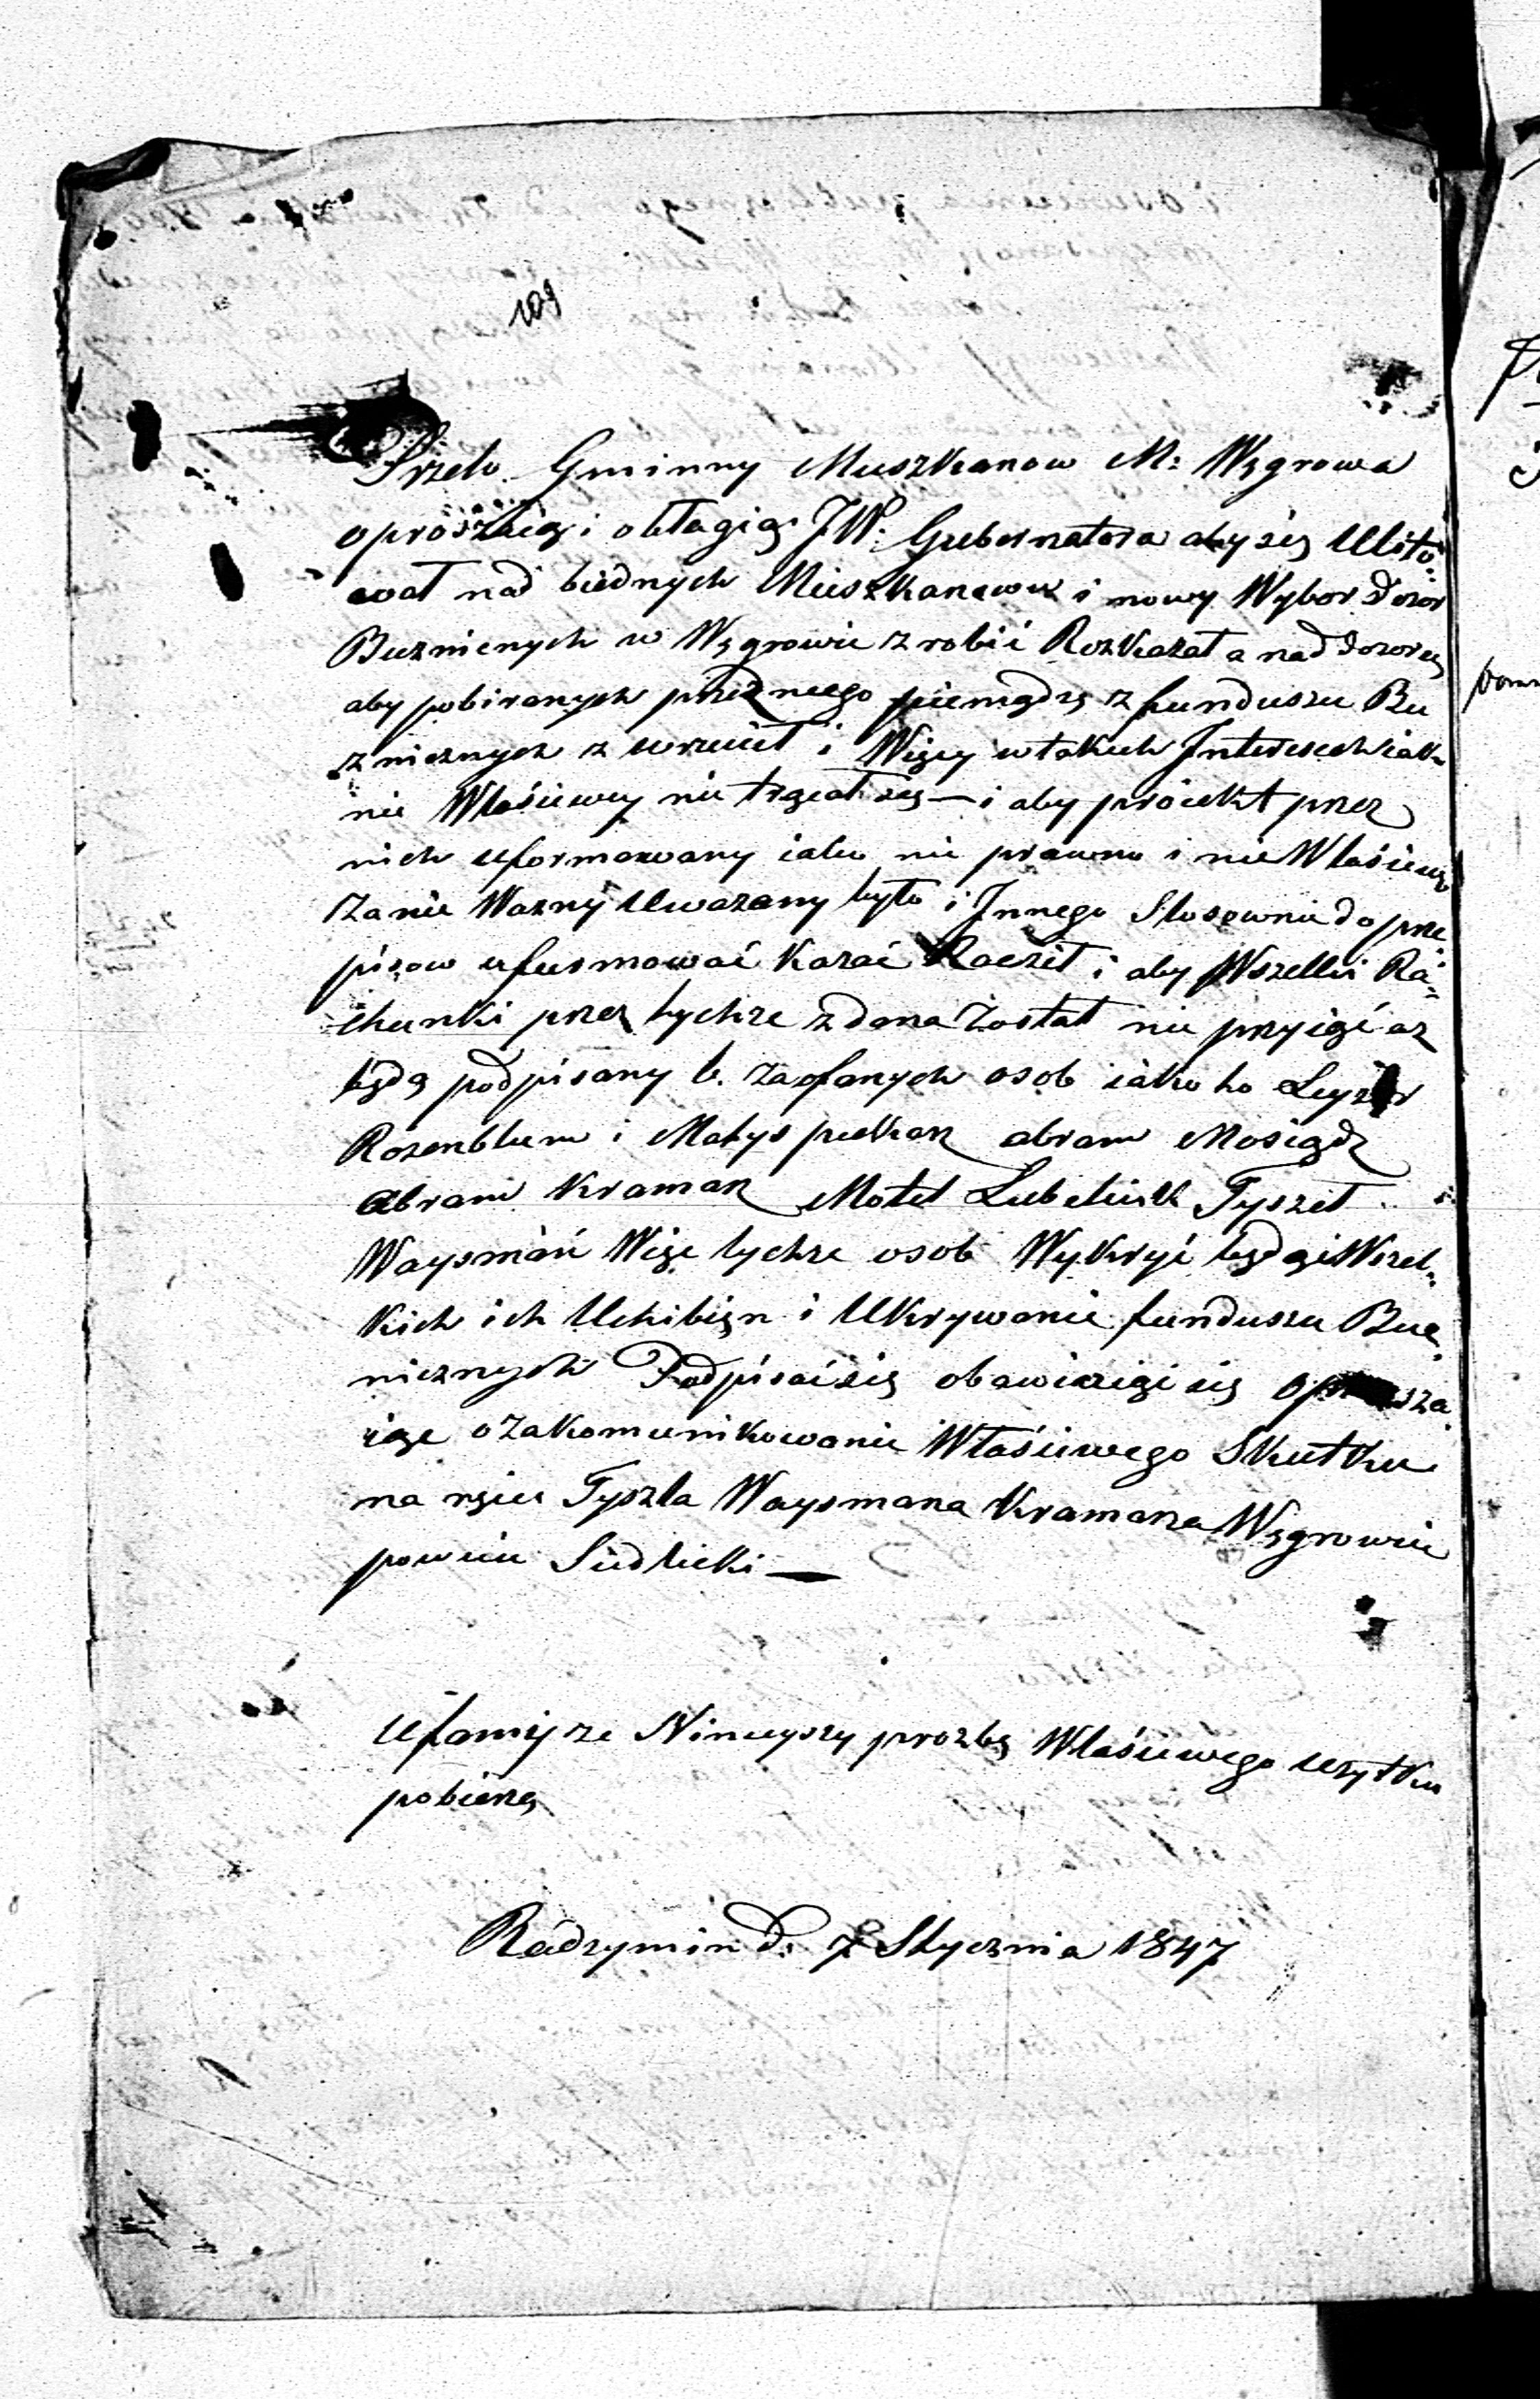 109
Przeto Gminny Muszkanow M: Węgrowa
oproszaią i obłagią JW: Gubernatora aby się Ulito-
wał nad biednych Mieszkanców i nowy Wybor Dozor
Buznienych w Węgrowie zrobić Rozkazał a nad Dozorcy
aby pobiranych przez niego pieniądzę z funduszu Bu
znicznych zwrucił i Więcy w takich Interesech iak
nie Właściwey nie trącał się — i aby proiekt przez
nich uformowany iako nie prawno i nie Właściwy
za nie Wazny Uwazany było i Innego Stosownie do prze-
pisow ufurmować Kazać Racził i aby Wszelki Ra-
chunki przez tychże zdana został nie przyięć az
będą podpisany 6. zaofanych osob iako to Leyzor
Rozenblum i Matys piekarz abram Mosiądz
Abram Kramarz Motel Lubelski Tyszel
Waysman Więc tychze osob Wykryć będąi Wszel-
kich ich Uchibięn i Ukrywanie funduszu Buz-
nicznych Podpisać się obawiązięi się oprasza
iąc o zakomunikowanie Właściwego Skutku
na ręcu Tyszla Waysmana Kramarza Węgrowie
powiciu Siedlicki —
Ufamy ze Nineyszy prozbę Właściwego uzytku
pobierzę
Radzymin d: 7 Stycznia 1847